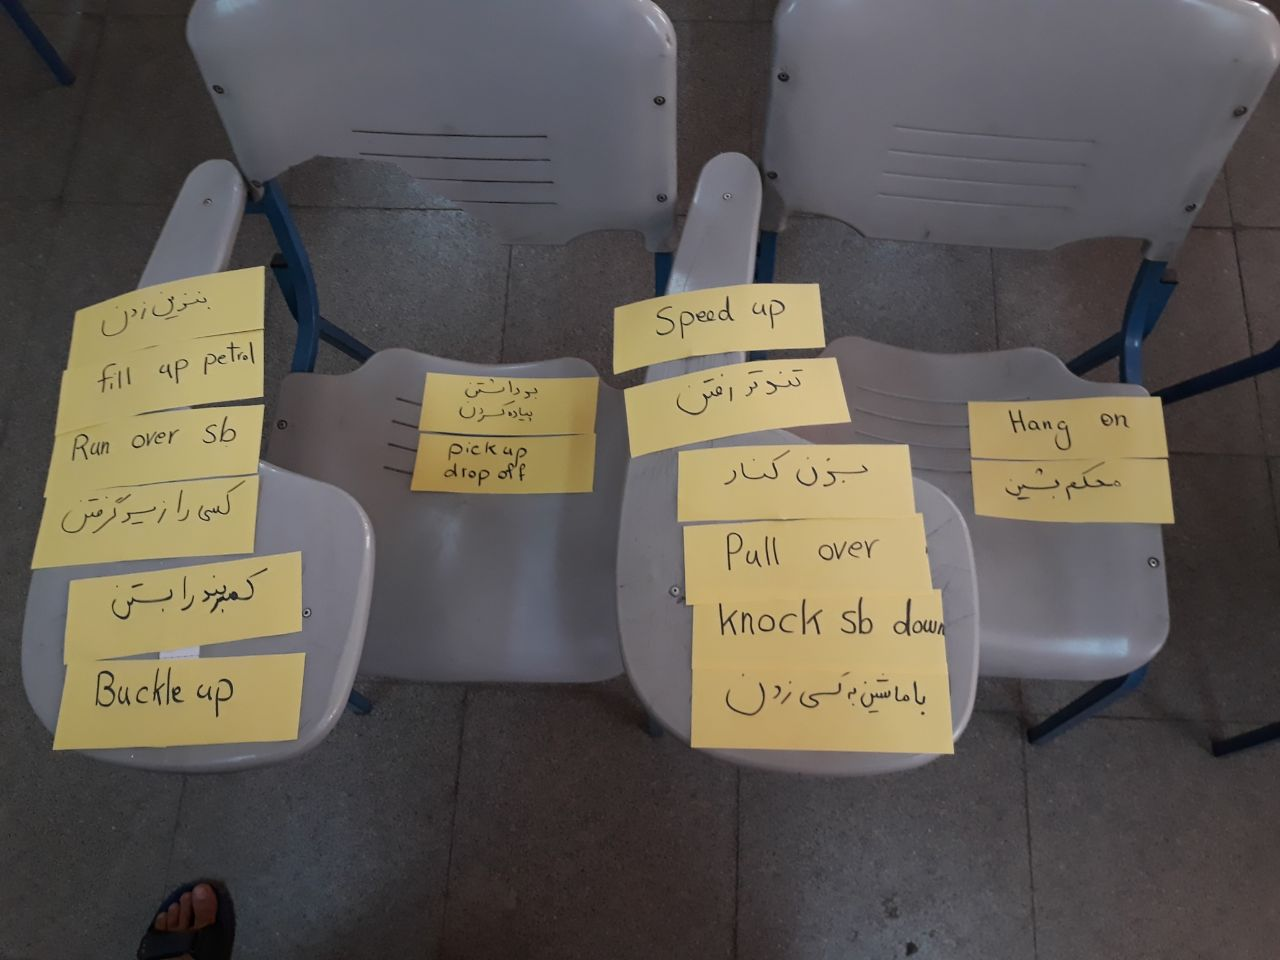 بنزین زدن
fill up petrol
Run over sb
کسی را زیر گرفتن
کمربند را بستن
Buckle up
برداشتن
پیاده کردن
pick up
drop off
Speed up
تندتر رفتن
بزن کنار
Pull over
knock sb down
با ماشین به کسی زدن
Hang on
محکم بشین